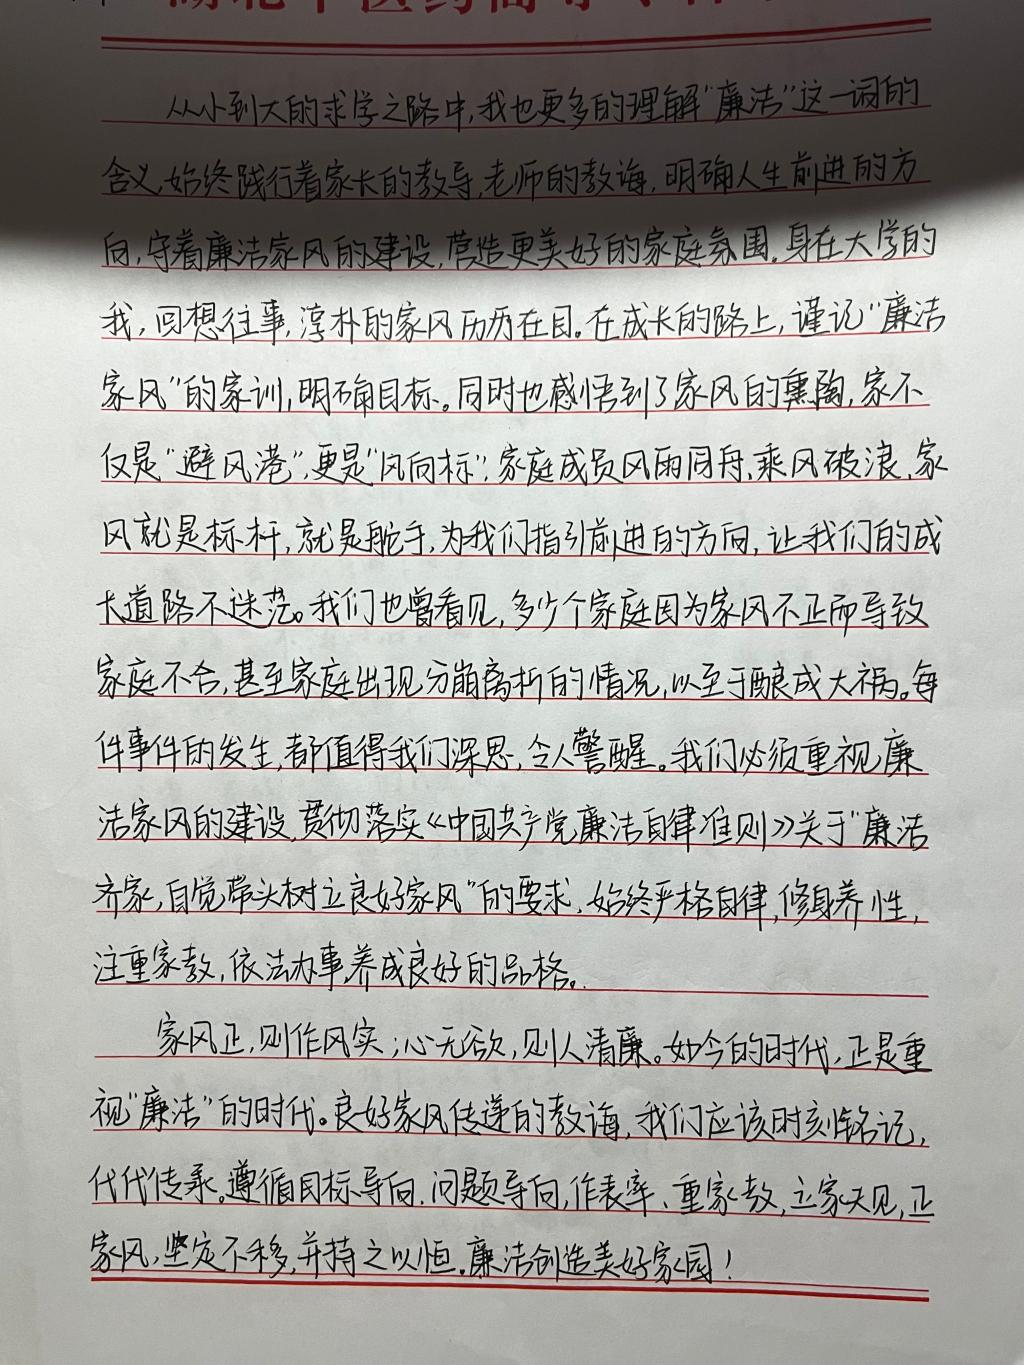 湖北中医药高等专科
从小到大的求学之路中,我也更多的理解"廉洁"这一词的
含义,始终践行着家长的教导,老师的教诲,明确人生前进的方
向,守着廉洁家风的建设,营造更美好的家庭氛围。身在大学的
我,回想往事,淳朴的家风历历在目。在成长的路上,谨记"廉洁
家风"的家训,明确目标。同时也感悟到了家风的熏陶,家不
仅是"避风港",更是"风向标";家庭成员风雨同舟、乘风破浪、家
风就是标杆,就是舵手,为我们指引前进的方向,让我们的成
长道路不迷茫。我们也曾看见,多少个家庭因为家风不正而导致
家庭不合,甚至家庭出现分崩离析的情况,以至于酿成大祸。每
件事件的发生,都值得我们深思,令人警醒。我们必须重视廉
洁家风的建设,贯彻落实《中国共产党廉洁自律准则》关于"廉洁
齐家,自觉带头树立良好家风"的要求,始终严格自律,修身养性,
注重家教,依法办事,养成良好的品格。
家风正,则作风实;心无欲,则人清廉。如今的时代,正是重
视"廉洁"的时代。良好家风传递的教诲,我们应该时刻铭记,
代代传承。遵循目标导向、问题导向,作表率、重家教,立家规,正
家风,坚定不移,并持之以恒。廉洁创造美好家园!